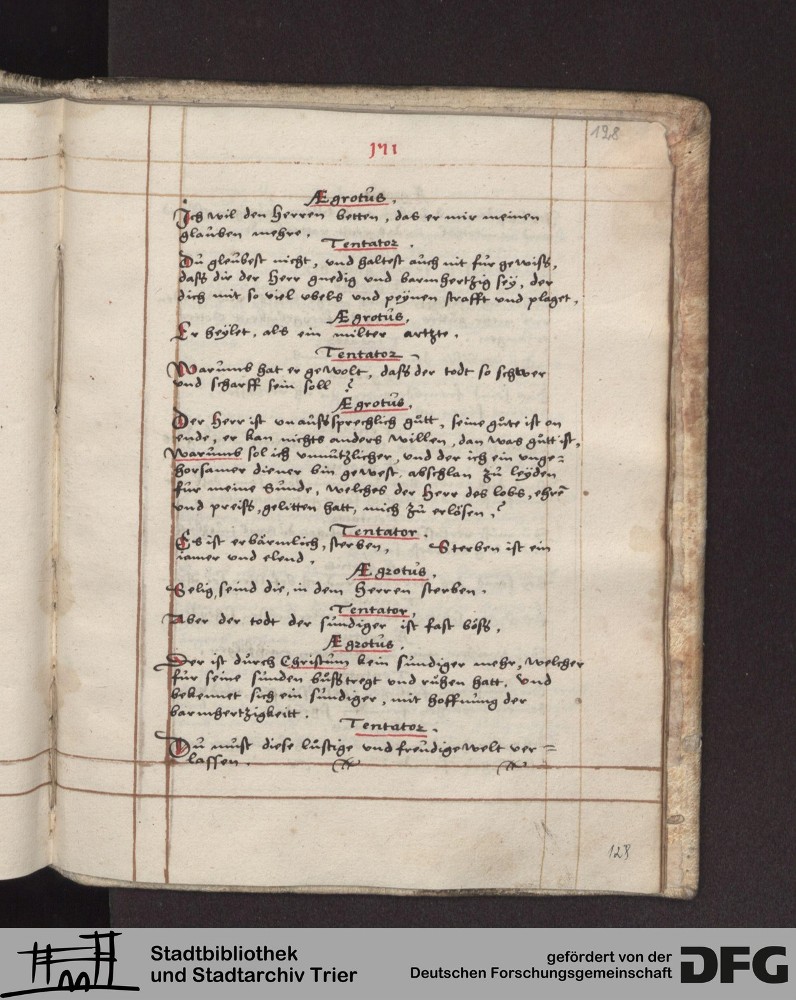 128
171
Ægrotus.
Ich wil den Herren betten, das er mir meinen
glauben mehre.
Tentator.
Du gleubest nicht, und haltest auch nit fur gewiss,
dass dir der Herr gnedig und barmhertzig seÿ, der
dich mit so viel ubels und peÿnen strafft und plaget.
Ægrotus.
Er heÿlet, als ein milter artzte.
Tentator
Warumb hat er gewolt, dass der todt so schwer
und scharff sein soll ?
Ægrotus.
Der Herr ist unaussprechlich gutt, seine gute ist on
ende, er kan nichts anders willen, dan was gutt ist,
warumb sol ich unnutzlicher, und der ich ein unge=
horsamer diener bin gewest, abschlan zu leÿden
fur meine sunde, welches der Herr des lobs, ehrē
und preiss, gelitten hatt, mich zu erlösen ?
Tentator.
Es ist erbärmlich, sterben, Sterben ist ein
iamer und elend.
Ægrotus.
Selig seind die, in dem Herren sterben.
Tentator.
Aber der todt der sundiger ist fast böss.
Ægrotus.
Der ist durch Christum kein sundiger mehr, welcher
fur seine sunden buss tregt und ruhen hatt, und
bekennet sich ein sundiger, mit hoffnung der
barmhertzigkeitt.
Tentator.
Du must diese lustige und freudige welt ver=
lassen.
128
Stadtbibliothek
und Stadtarchiv Trier
gefördert von der
Deutschen Forschungsgemeinschaft
DFG